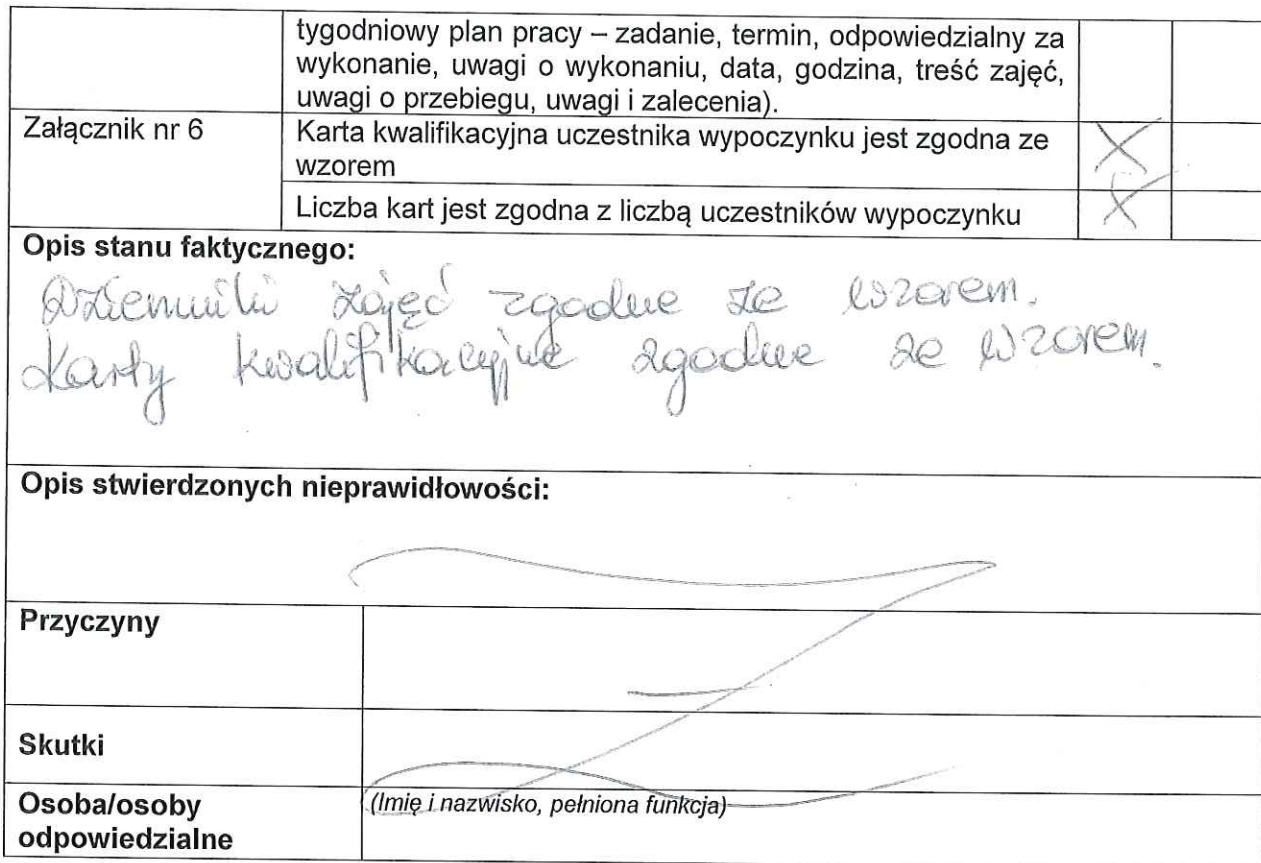 tygodniowy plan pracy – zadanie, termin, odpowiedzialny za
wykonanie, uwagi o wykonaniu, data, godzina, treść zajęć,
uwagi o przebiegu, uwagi i zalecenia).
Załącznik nr 6
Karta kwalifikacyjna uczestnika wypoczynku jest zgodna ze
wzorem
X
Liczba kart jest zgodna z liczbą uczestników wypoczynku
X
Opis stanu faktycznego:
Dzienniki zajęć zgodne ze wzorem.
Karty kwalifikacyjne zgodne ze wzorem.
Opis stwierdzonych nieprawidłowości:
Przyczyny
Skutki
Osoba/osoby
odpowiedzialne
(Imię i nazwisko, pełniona funkcja)